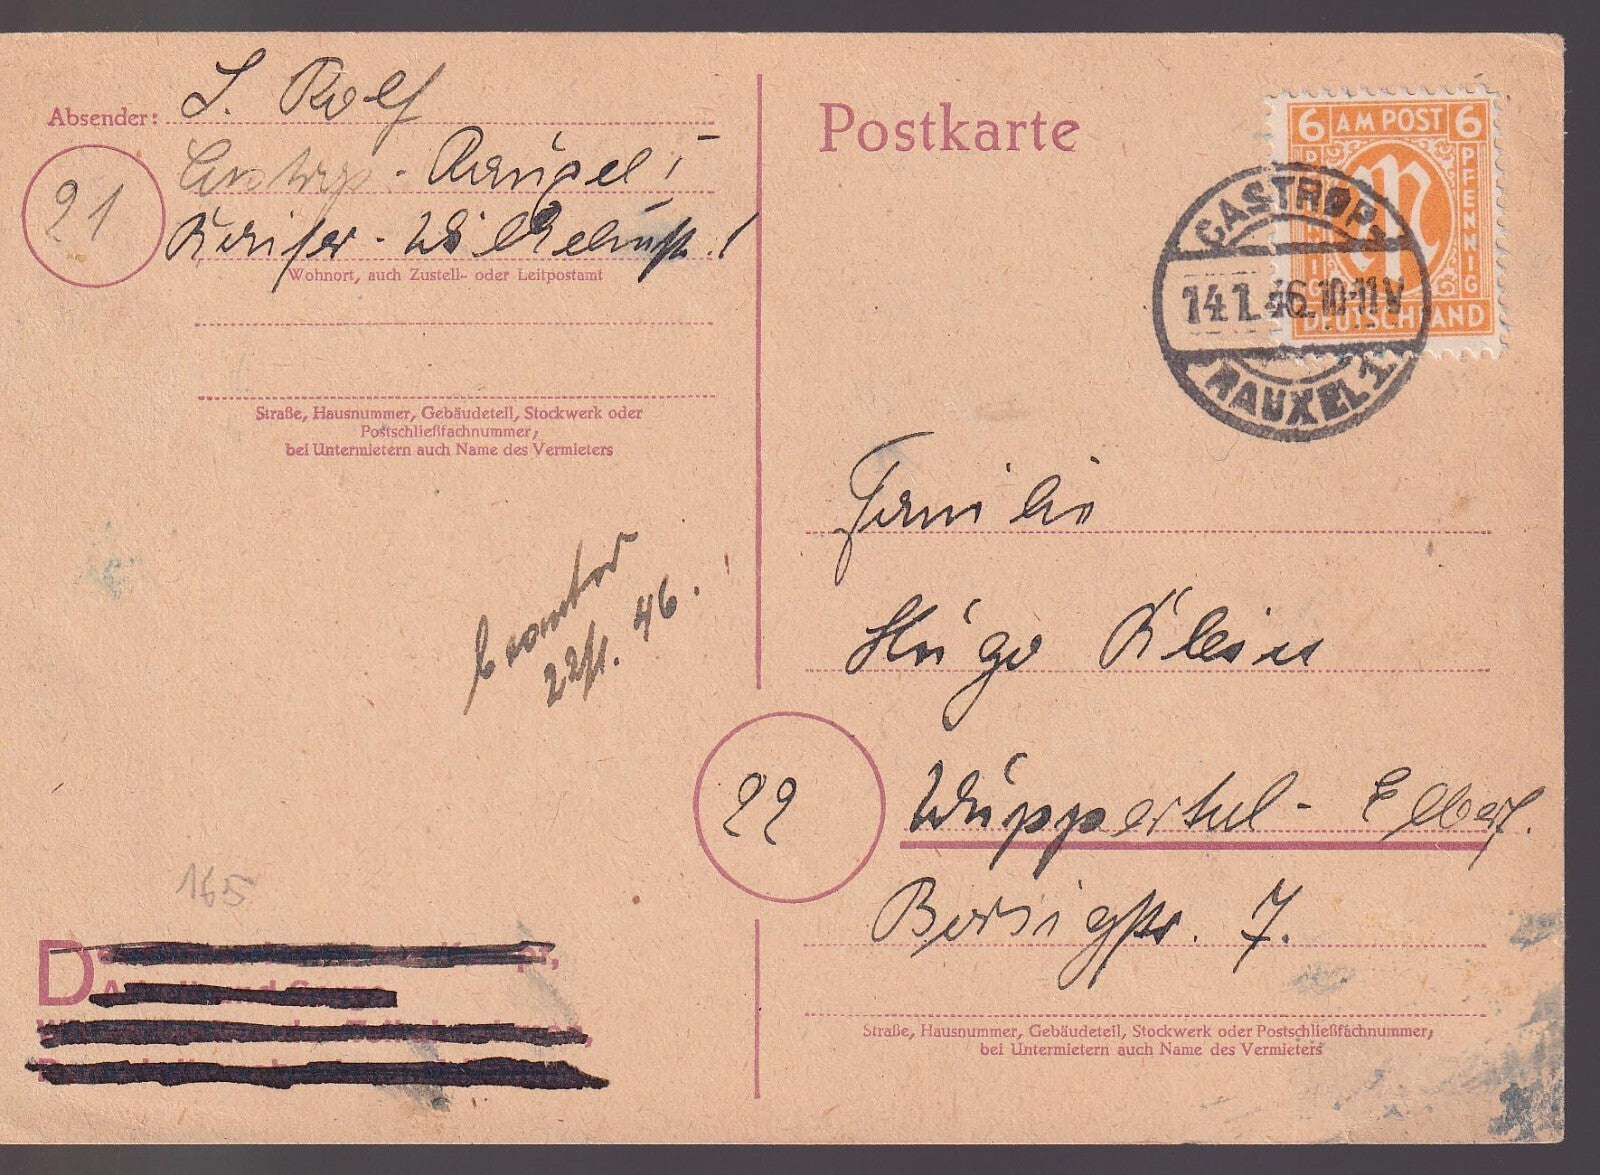 Absender: S. Rolf
Castrop-Rauxel I
21
Kaiser-Wilhelmstr. 1
Wohnort, auch Zustell- oder Leitpostamt
Straße, Hausnummer, Gebäudeteil, Stockwerk oder
Postschließfachnummer;
bei Untermietern auch Name des Vermieters
22/1. 46.
165
D
Postkarte
6 AM POST 6
PFENNIG
PFENNIG
M
DEUTSCHLAND
CASTROP-
14.1.46.10-11V
RAUXEL 1
Familie
Hugo Klein
22
Wuppertal-Elberf.
Borsigstr. 7.
Straße, Hausnummer, Gebäudeteil, Stockwerk oder Postschließfachnummer;
bei Untermietern auch Name des Vermieters